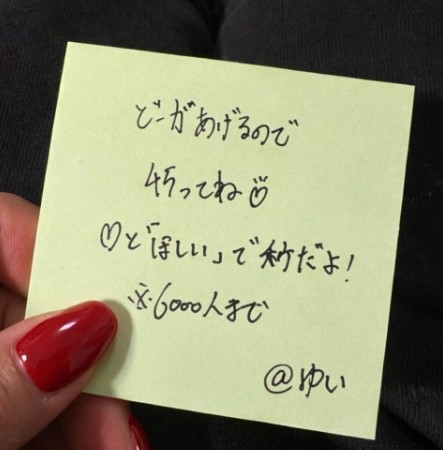 どーがあげるので
仔ってね♡
♡と「ほしい」で秒だよ!
※6000人まで
@ゆい